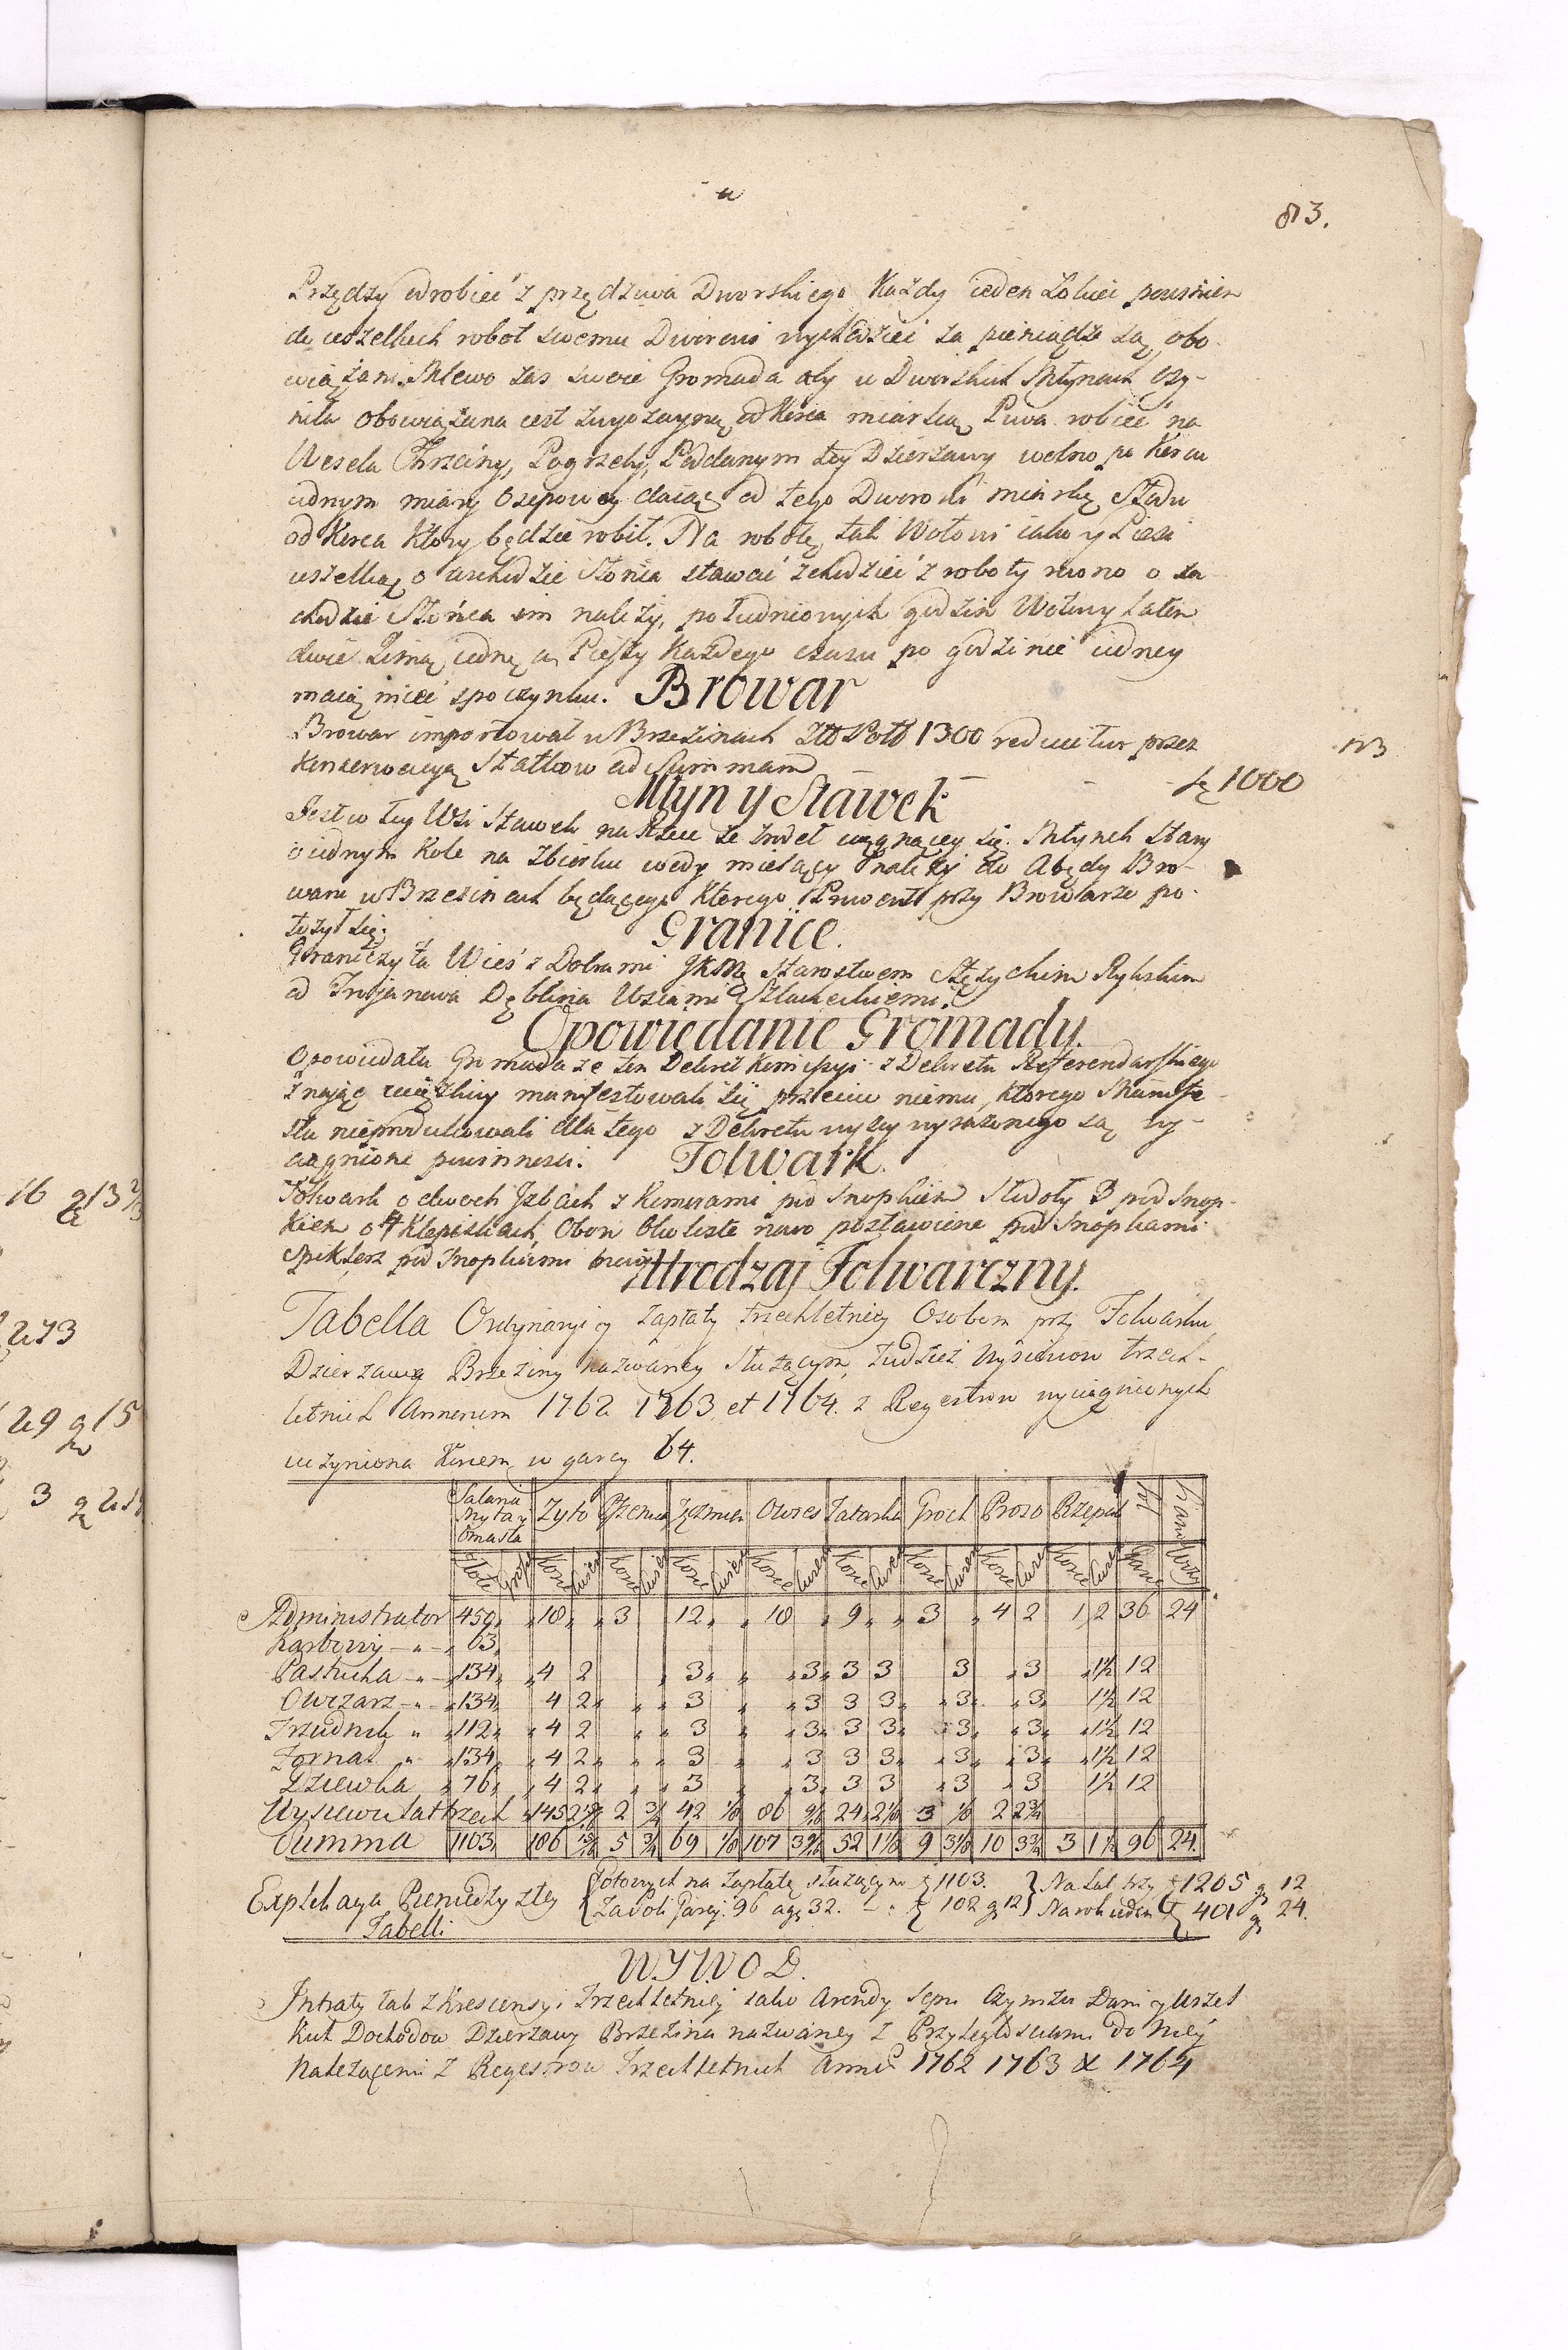 83.
Przędzy odrobieć z przędziwa Dworskiego Każdy ieden Łokiei powinien
do wszelkich robot swemu Dworowi wychodzieć za pieniądze są obo-
wiązani. Mlewo zas swoie Gromada aby w Dworskich Młynach czy-
niła obowiązana iest od Korca miarką Piwa robieć na
Wesela Chrzciny, Pogrzeby, Poddanym tey Dzierżawy wolno po Korcu
iednym miary Czepowey daiąc od tego Dworowi miarkę Słodu
od Korca Ktory będzie robił. Na robotę tak Wołowi iako y Piesi
wszelką o wschodzie Słońca stawać zchodzieć z roboty rowno o za-
chodzie Słońca im należy, południowych godzin Wołowy Latem
dwie Zimą iednę a Pieszy Każdego czasu po godzinie iedney
maią mieć spoczynku. Browar
Browar importował w Brzezinach Złł Poll 1300 reducitur przez
Konserwacyą Statkow ad Summam - - - 1000
Młyn y Stawek
Jest w tey Wsi Stawek na Rzece ze źrdeł ciągnącey się. Młynek Stary
o iednym Kole na Zbiorku wody mielący należy do Arędy Bro-
waru w Brzezinach będącego Ktorego Prowent przy Browarze po-
łożył się. Granice.
Graniczy ta Wieś z Dobrami JKMę Starostwem Stężyckim Rykskim
od Trojanowa Dęblina Wsiami Szlacheckiemi.
Opowiedanie Gromady.
Opowiedała Gromada że ten Dekret Komissyi z Dekretu Referendarskiego
znając uciążliwy manifestowali się przeciw niemu, Ktorego Manife-
stu nieprodukowali dla tego z Dekretu wyżey wyrażonego są wy-
ciągnione powinnosci. Folwark.
Folwark o dwoch Jzbach z Komorami pod Snopkiem Stodoły 3 pod Snop-
kiem o 4 Klepiskach, Obory Okoliste nowo postawione pod Snopkami
Spiklerz pod Snopkami
Urodzaj Folwarczny.
Tabella Ordynaryi y Zapłaty trzechletniey Osobom przy Folwarku
Dzierzawy Brzeziny nazwaney Służącym, tudzież Wysiewow trzech-
letnich Annorum 1762 1763 et 1764. z Regestrow wyciągnionych
uczyniona Korcem w garcy 64.
Salaria Myta y Omasta Zyto Pszenica Jęczmień Owies Tatarka Groch Proso Rzepak Sol
Złote Grosze Korce Cwier Korce Cwier Korce Cwier Korce Cwier Korce Cwier Korce Cwier Korce Cwier Korce Cwier Garce
Administrator 450 18 3 12 18 9 3 4 2 1 2 36 24
Karbowy 63
Pastucha 134 4 2 3 3 3 3 3 3 1½ 12
Owczarz 134 4 2 3 3 3 3 3 3 1½ 12
Trzudnik 112 4 2 3 3 3 3 3 3 1½ 12
Fornal 134 4 2 3 3 3 3 3 3 1½ 12
Dziewka 76 4 2 3 3 3 3 3 3 1½ 12
Wysiewu lat trzech 145 2 3/4 42 1/8 86 24 3 1/8 2 2¾
Summa 1103 186 5 3/4 69 1/8 107 52 9 3 1/8 10 3¾ 3 96 24
Explikacya Pieniędzy z tey Gotowych na Zapłatę służącym 1103. Na Lat trzy 1205 g 12
Tabelli Za Soli Garcy. 96 a g 32. - 102 g 12 Na rok ieden 401 g 24.
WYWOD.
Jntraty tak z Krescensyi Trzechletniey iako Arendy Czynszu Dani y Wszel-
kich Dochodow Dzierzawy Brzezina nazwaney z Przyległosciami do niey
należącemi z Regestrow Trzechletnich Annor 1762 1763 & 1764